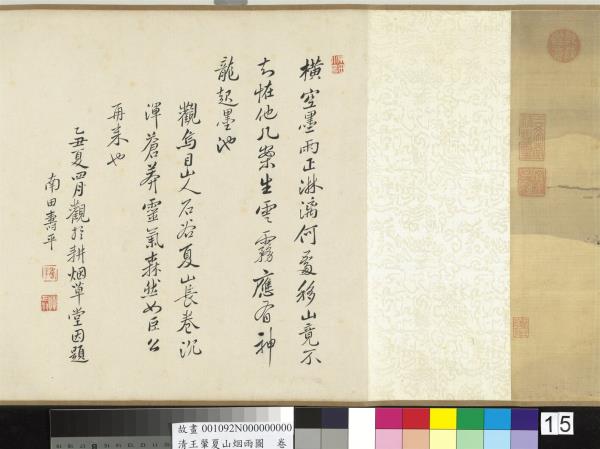 橫空墨雨正淋漓何處移山竟不
知怪他几案生雲霧應有神
龍起墨池
觀烏目山人石谷夏山長卷沉
渾蒼莽靈氣森然如巨公
再来也
乙丑夏四月觀於耕烟草堂因題
南田壽平
故畫 001092N000000000
清王翬夏山烟雨圖 卷
15